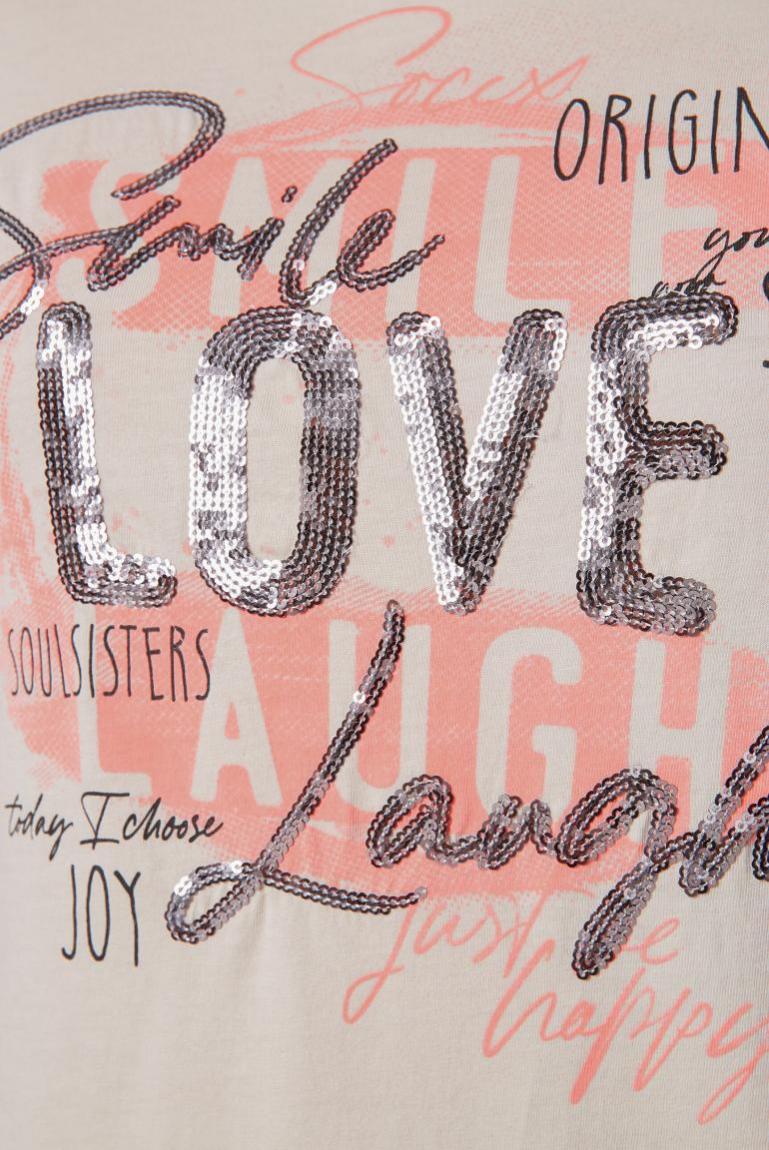 Soccx
ORIGIN
Smile
SMILE
you
LOVE
SOULSISTERS
LAUGH
Laugh
today I choose
JOY
just be
happy